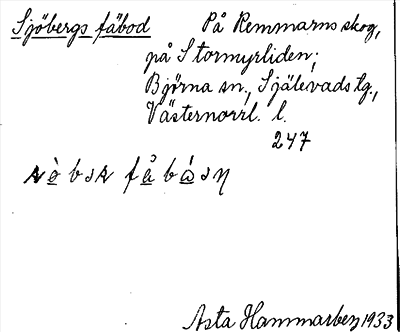 Sjöbergs fäbod På Remmarns skog,
på Stormyrliden;
Björna sn., Själevads tg.,
Västernorrl. l.
247
Asta Hammarberg 1933